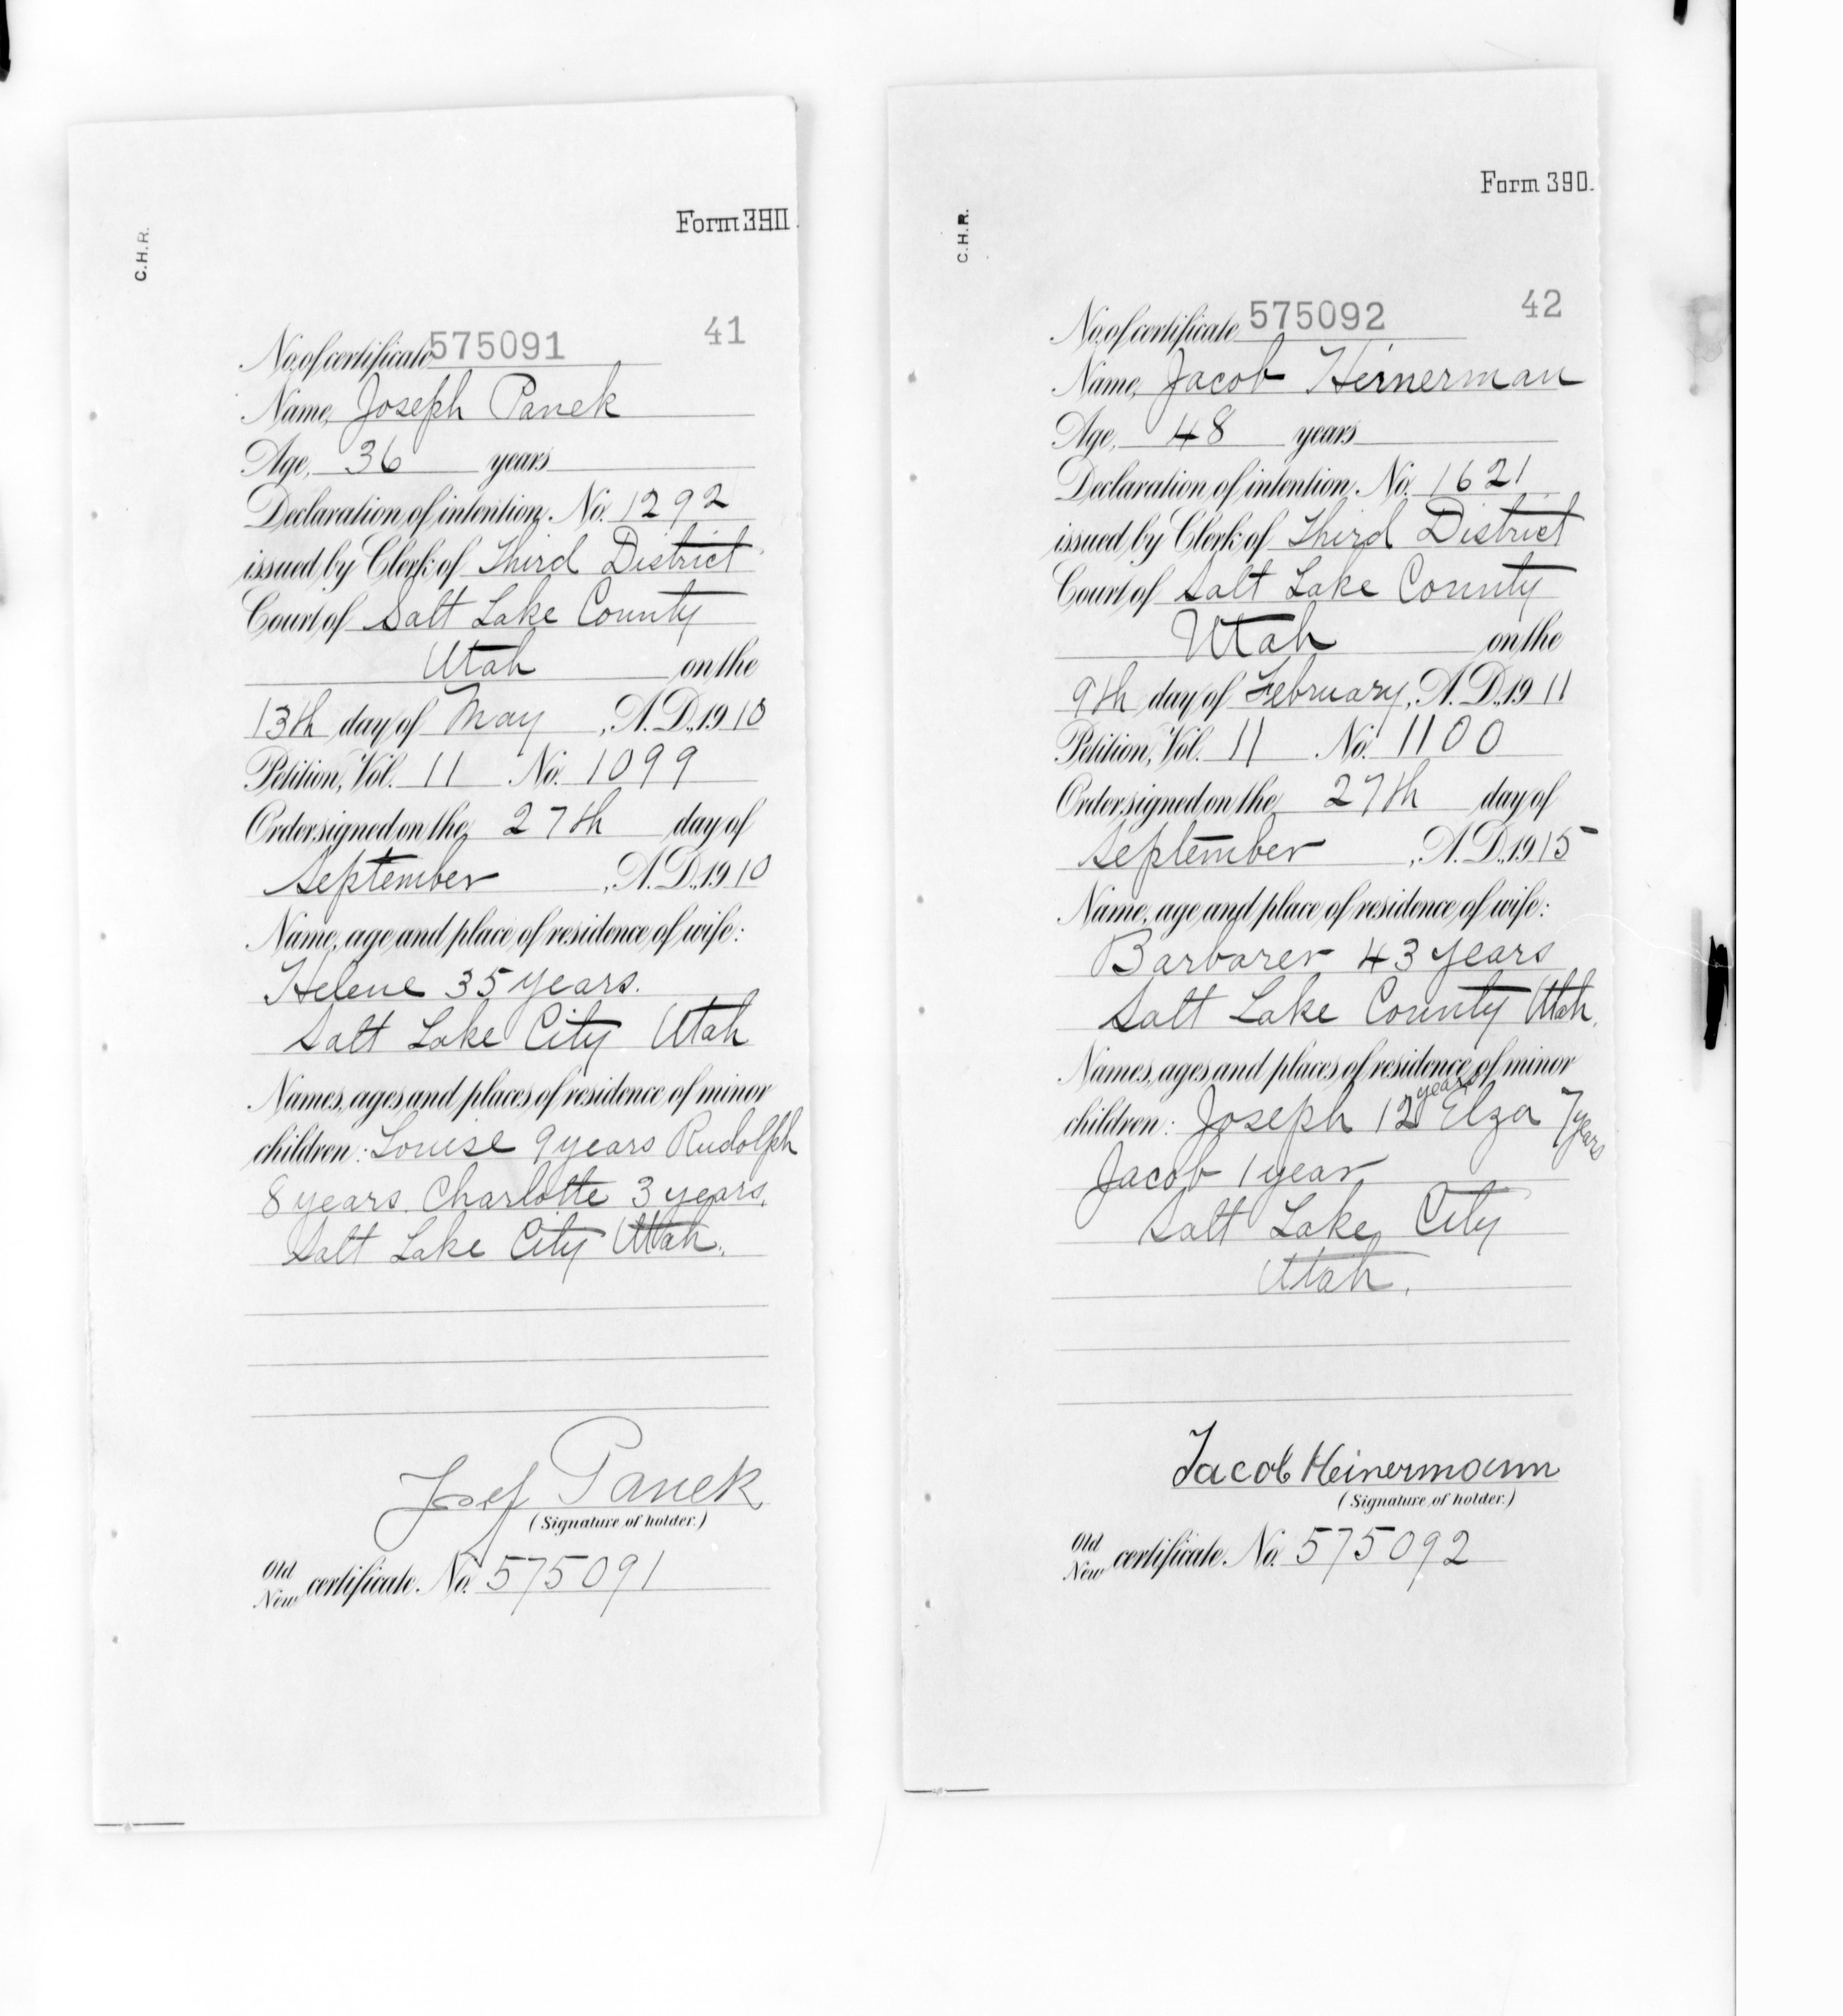 C.H.R.
Form 390.
No. of certificate 575091 41
Name, Joseph Panek
Age, 36 years
Declaration of intention, No. 1292
issued by Clerk of Third District
Court of Salt Lake County
Utah on the
13th day of May, A.D. 1910
Petition, Vol. 11 No. 1099
Order signed on the 27th day of
September, A.D. 1910
Name, age and place of residence of wife:
Helene 35 years.
Salt Lake City Utah
Names, ages and places of residence of minor
children: Louise 9 years Rudolph
8 years. Charlotte 3 years.
Salt Lake City Utah.
Josef Panek
(Signature of holder.)
Old
New certificate No. 575091
C.H.R.
Form 390.
No. of certificate 575092 42
Name, Jacob Heinerman
Age, 48 years
Declaration of intention, No. 1621
issued by Clerk of Third District
Court of Salt Lake County
Utah on the
9th day of February, A.D. 1911
Petition, Vol. 11 No. 1100
Order signed on the 27th day of
September, A.D. 1915
Name, age and place of residence of wife:
Barbarer 43 years
Salt Lake County Utah.
Names, ages and places of residence of minor
children: Joseph 12 years Elza 7 years
Jacob 1 year
Salt Lake City
Utah.
Jacob Heinermann
(Signature of holder.)
Old
New certificate No. 575092